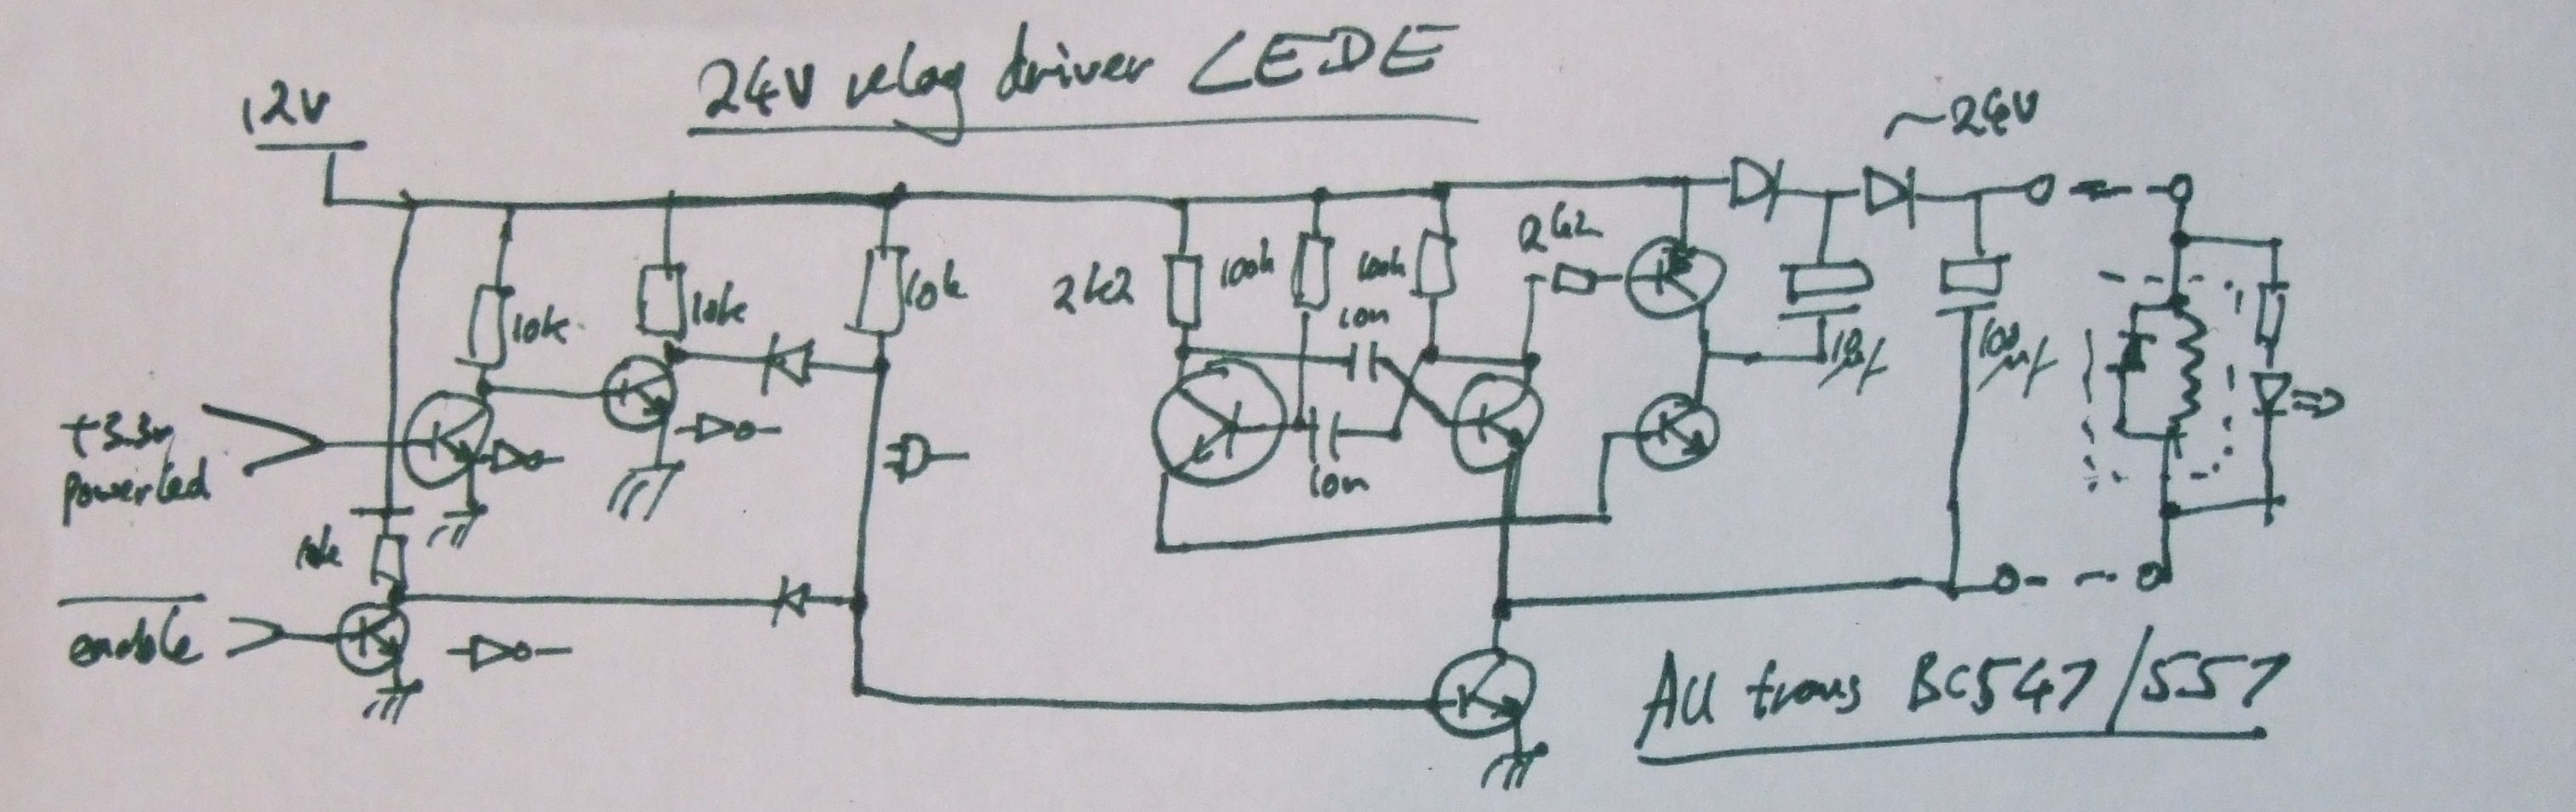 24V relay driver LEDE
12V
~24V
2k2
10k
10k
10k
2k2
100k
100k
10n
10n
100µf
+3.3v
powerled
10k
enable
All trans BC547/557